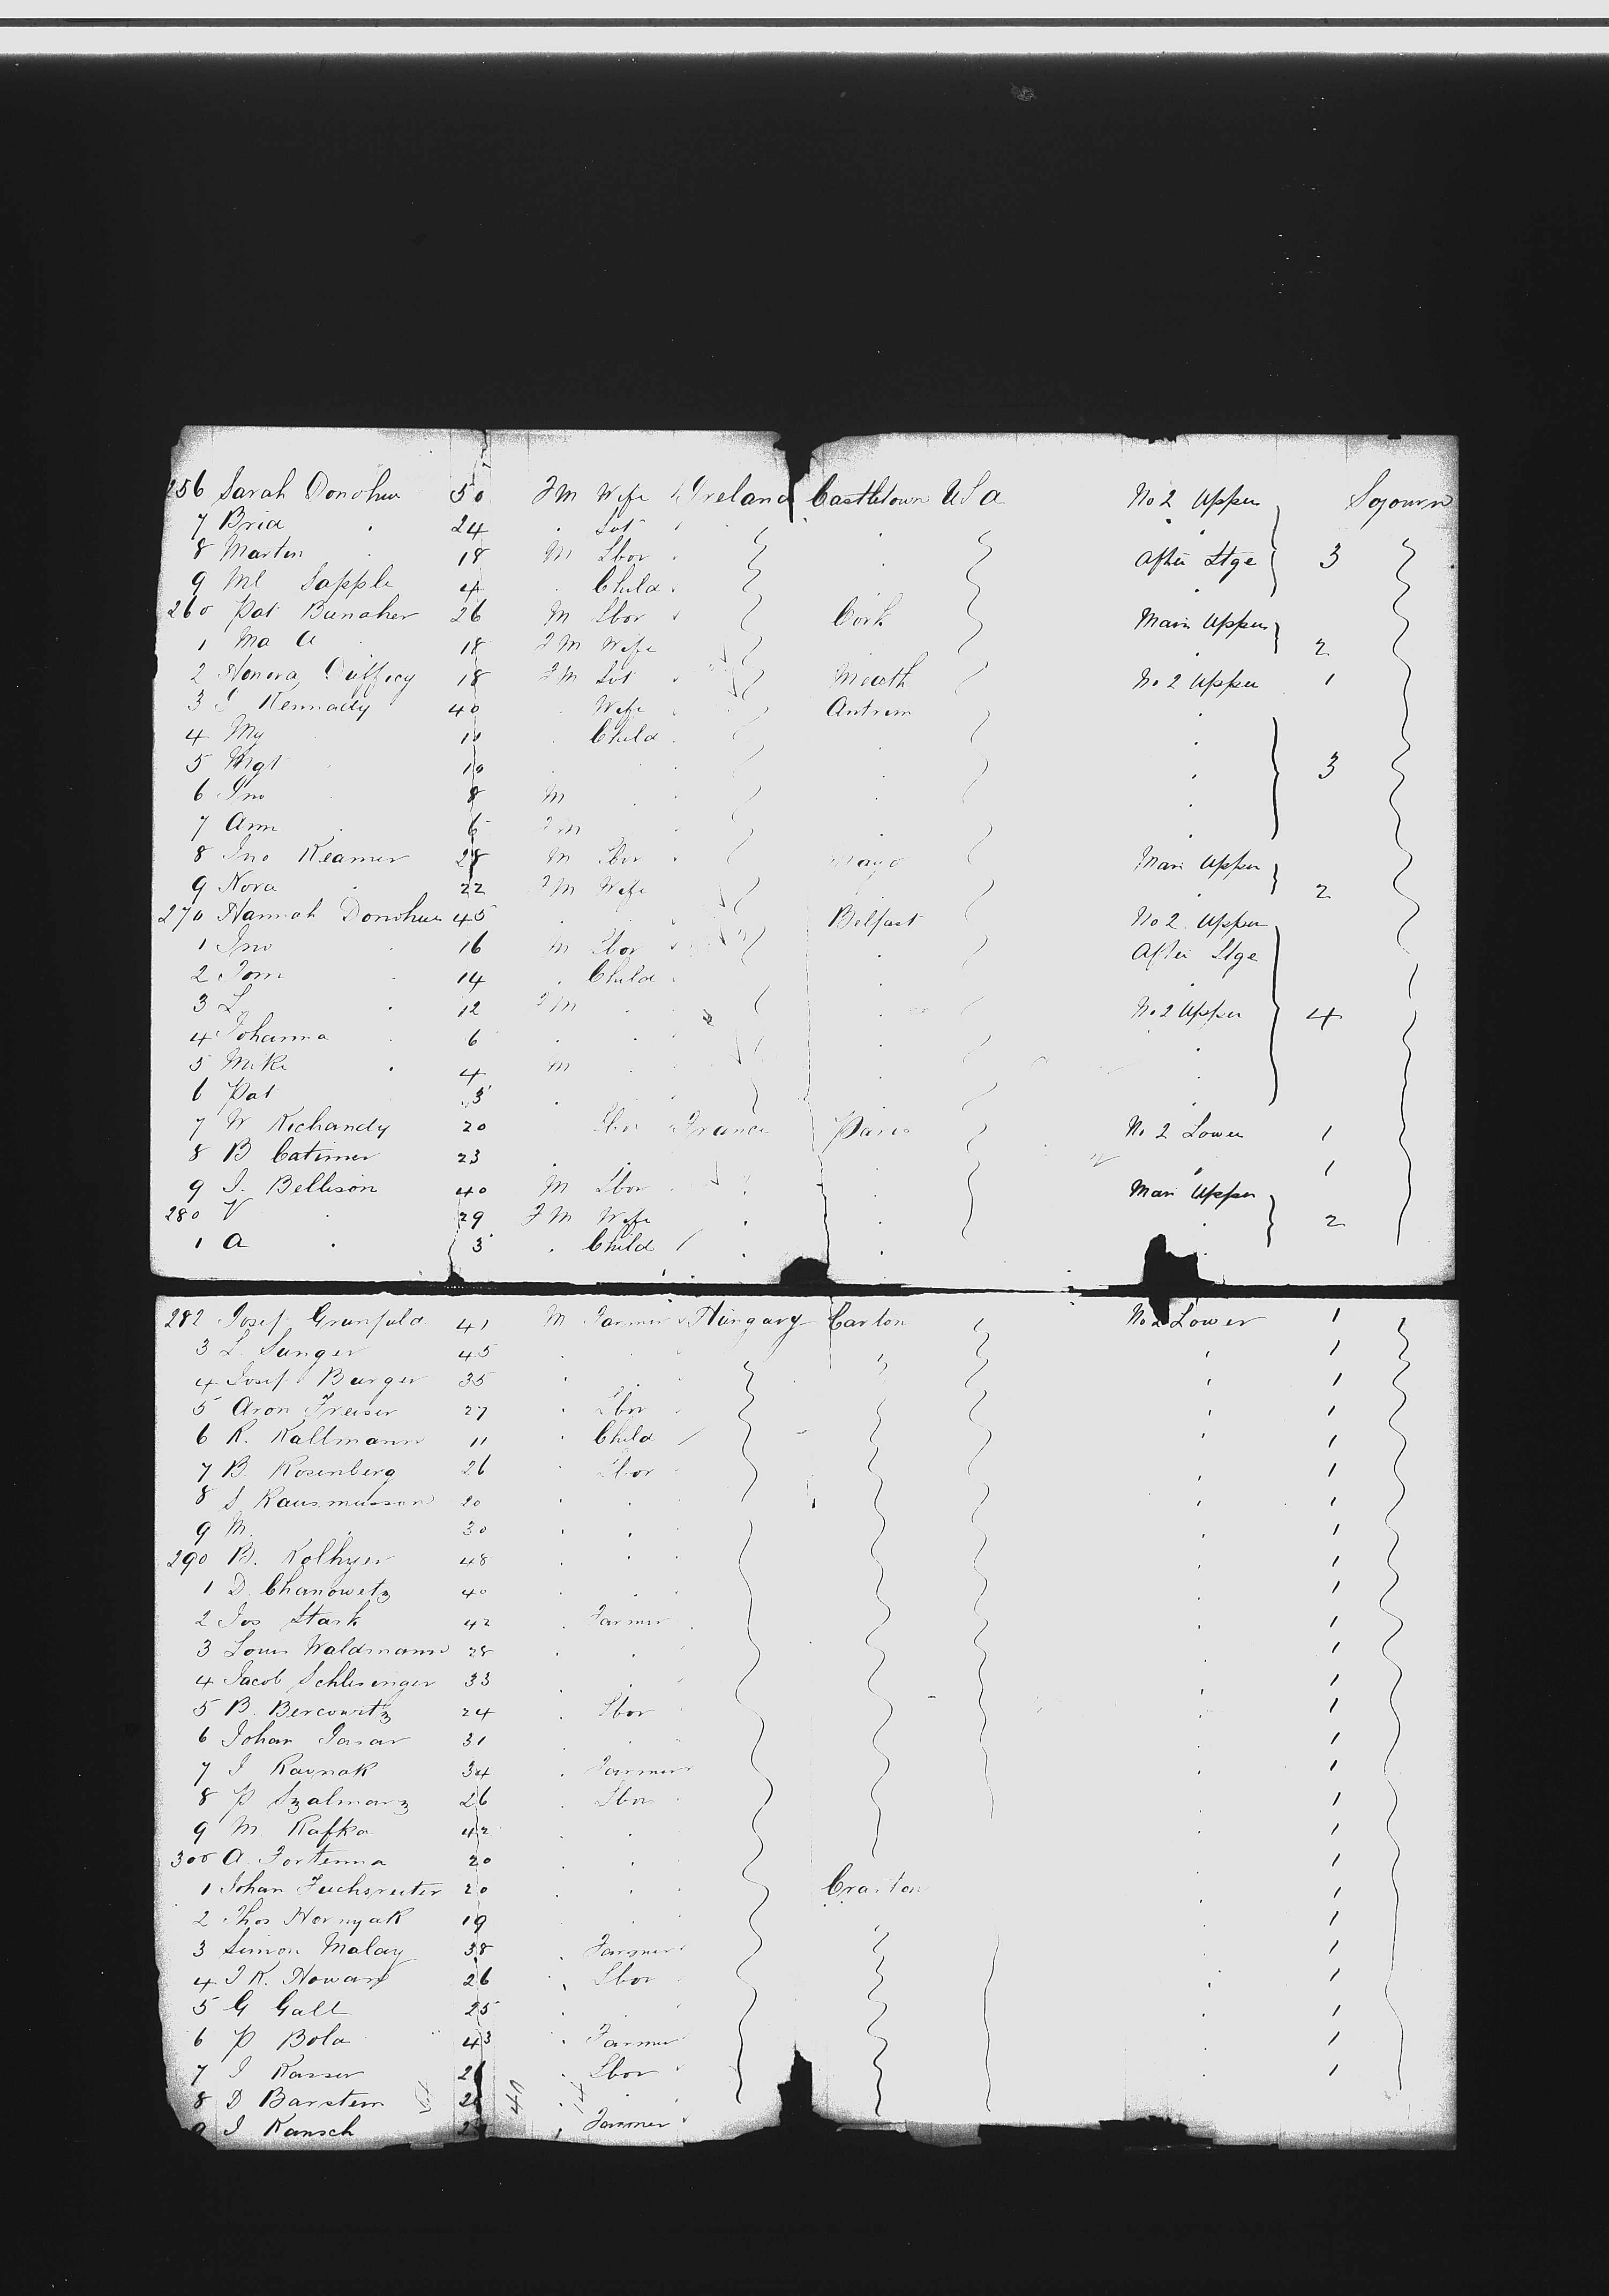 256 Sarah Donohue 50 Fm Wife Ireland Castletown USA No 2 Upper Sojourn
7 Brid " 24 " Svt
8 Martin " 18 M Lbor " After Stge 3
9 Ml Sapple 4 " Child "
260 Pat Banaher 26 M Lbor Cork Main Upper
1 Ma A 18 Fm Wife " 2
2 Honora Dufficy 18 Fm Svt Meath No 2 Upper 1
3 J Kennady 40 " Wife Antrim "
4 My 10 " Child "
5 Mgt 10 " " 3
6 Jno 8 M "
7 Ann 6 Fm "
8 Jno Keamer 28 M Lbor Mayo Main Upper
9 Nora " 22 Fm Wife 2
270 Hannah Donohue 45 " Belfast No 2 Upper
1 Jno " 16 M Lbor " After Stge
2 Tom " 14 " Child "
3 L " 12 Fm " No 2 Upper 4
4 Johanna " 6 " "
5 Mike " 4 M "
6 Pat 3 " "
7 W Richandy 20 Lbor France Paris No 2 Lower 1
8 B Catimer 23 " " 1
9 J. Bellison 40 M Lbor " Main Upper
280 V " 29 Fm Wife " " 2
1 A " 3 " Child " "
282 Josef Grunfeld 41 M Farmer Hungary Carton No 2 Lower 1
3 L Sunger 45 " " 1
4 Josef Burger 35 " " 1
5 Aron Freiser 27 " Lbor " 1
6 K. Kallmann 11 " Child " 1
7 B. Rosenberg 26 " Lbor " 1
8 S Rausmusson 20 " " " 1
9 M. " 30 " " " 1
290 B. Kolhyer 48 " " " 1
1 D Chanowetz 40 " " " 1
2 Jos Stark 42 " Farmer " 1
3 Louis Waldmann 28 " " " 1
4 Jacob Schlesinger 33 " " " 1
5 B. Bercowitz 24 " Lbor " 1
6 Johan Jasar 31 " " " 1
7 J Ravnak 34 " Farmer " 1
8 P Szalmarz 26 " Lbor " 1
9 M. Kafka 42 " " " 1
300 A. Fortenna 20 " " " 1
1 Johan Fuchsreiter 20 " " Craston " 1
2 Thos Hornyak 19 " " " 1
3 Simon Malay 38 " Farmer " 1
4 J K. Nowax 26 " Lbor " 1
5 G Gall 25 " " " 1
6 P Bola 43 " Farmer " 1
7 J Kasser 26 " Lbor " 1
8 D Barstem "
9 J Kansch " Farmer